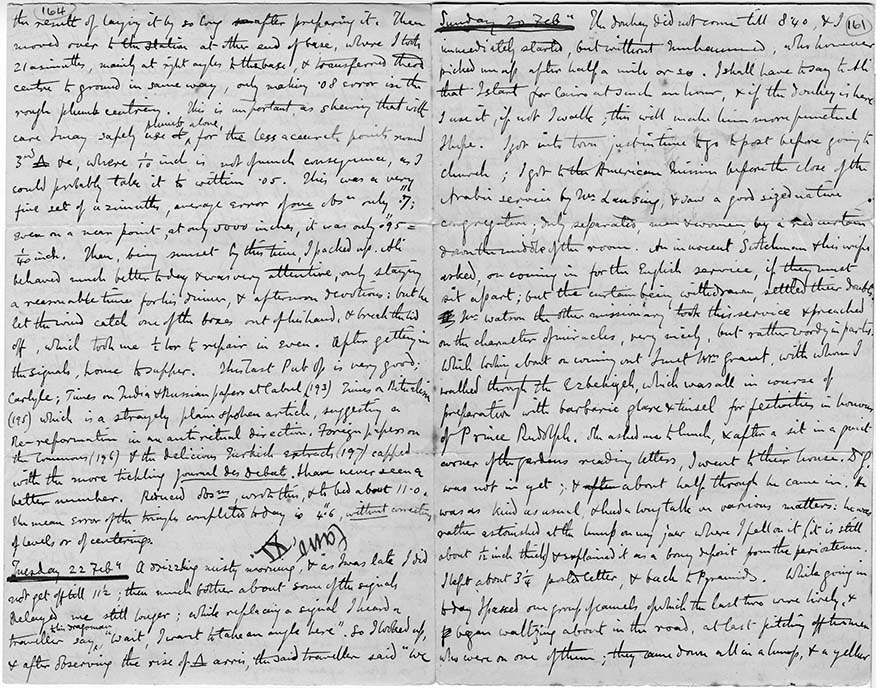 (164)
the result of laying it by so long after preparing it. Then
moved over to the station at other end of base, where I took
21 azimuths, mainly at right angles to the base, & transferred the
centre to ground in same way, only making .08 error in the
rough plumb centreing. This is important, as shewing that with
care I may safely use plumb alone, for the less accurate points round
3rd Δ &c, where 1/10 inch is not of much consequence, as I
could probably take it to within .05. This was a very
fine set of azimuths, average error of one obsn only ".7;
even on a near point, at only 5000 inches, it was only ".95 =
1/40 inch. Then, being sunset by this time, I packed up. Ali
behaved much better today & was very attentive, only staying
a reasonable time for his dinner, & afternoon devotions: but he
let the wind catch one of the boxes out of his hand, & break the lid
off, which took me ½ hor to repair in even. After getting in
the signals, home to supper. This last Pub Op is very good;
Carlyle; Times on India & Russian papers at Cabul (193) Times on Ritualism
(195) which is a strangely plain spoken article, suggesting a
Re-reformation in an anti ritual direction, Foreign papers on
the Commons (196) & the delicious Turkish extracts (197) capped
with the more tickling Journal des Debats, I have never seen a
better number. Reduced obsns, wrote this, & to bed about 11-0.
The mean error of the triangles completed today is 4".6, without correcting
of levels or of centerings.
Tuesday 22 Feby A drizzling misty morning, & as I was late I did
not get off till 11½; then much bother about some of the signals
delayed me still longer; while replacing a signal I heard a
traveller say to his dragoman "Wait, I want to take an angle here". So I looked up,
& after observing the rise of Δ arris, the said traveller said "We
(161)
Sunday 20 Feby The donkey did not come till 8.40, & I
immediately started, but without Muhammed, who however
picked me up after half a mile or so. I shall have to say to Ali
that I start for Cairo at such an hour, & if the donkey is here
I use it, if not I walk, this will make him more punctual
I hope. I got into town just in time to go to post before going to
church; I got to the American Mission before the close of the
Arabic service by Mr Lansing, & saw a good sized native
congregation, duly separated, men & women by a red curtain
down the middle of the room. An innocent Scotchman & his wife
asked, on coming in for the English service, if they must
sit apart; but the curtain being withdrawn settled their doubts.
Mr Watson the other missionary took this service & preached
on the character of miracles, very nicely, but rather wordy in parts.
While looking about on coming out I met Mrs Grant, with whom I
walked through the Ezbekiyeh, which was all in course of
preparation with barbaric glare & tinsel for festivities in honour
of Prince Rudolph. She asked me to lunch, & after a sit in a quiet
corner of the gardens reading letters, I went to their house. Dr G.
was not in yet; & about half through he came in. He
was as kind as usual, & had a long talk on various matters: he was
rather astonished at the lump on my jaw where I fell on it (it is still
about ½ inch thick) & explained it as a bony deposit from the periosteum.
I left about 3¼ posted letter, & back to Pyramids. While going in
today I passed one group of camels, of which the last two were lively, &
began waltzing about in the road, at last pitching off two men
who were on one of them; they came down all in a lump, & a yellow